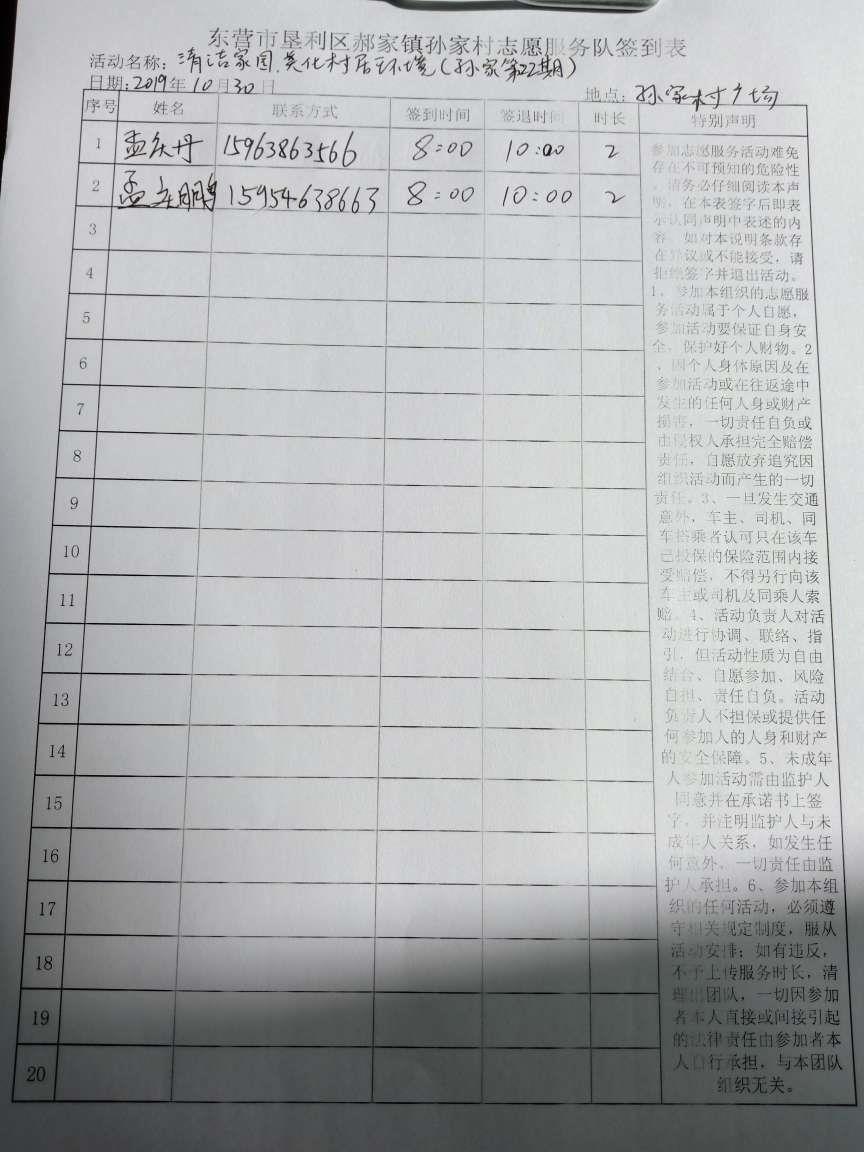 东营市垦利区郝家镇孙家村志愿服务队签到表
活动名称：清洁家园,美化村居环境（孙家第22期）
日期：2019年10月30日 地点：孙家村广场
序号 姓名 联系方式 签到时间 签退时间 时长 特别声明
1 孟庆丹 15963863566 8:00 10:00 2
2 孟庆鹏 15954638663 8:00 10:00 2
3
4
5
6
7
8
9
10
11
12
13
14
15
16
17
18
19
20
参加志愿服务活动难免
存在不可预知的危险性
，请务必仔细阅读本声
明，在本表签字后即表
示认同声明中表述的内
容。如对本说明条款存
在异议或不能接受，请
拒绝签字并退出活动。
1、参加本组织的志愿服
务活动属于个人自愿，
参加活动要保证自身安
全，保护好个人财物。2
、因个人身体原因及在
参加活动或在往返途中
发生的任何人身或财产
损害，一切责任自负或
由侵权人承担完全赔偿
责任，自愿放弃追究因
组织活动而产生的一切
责任。3、一旦发生交通
意外，车主、司机、同
车搭乘者认可只在该车
已投保的保险范围内接
受赔偿，不得另行向该
车主或司机及同乘人索
赔。4、活动负责人对活
动进行协调、联络、指
引，但活动性质为自由
结合、自愿参加、风险
自担、责任自负。活动
负责人不担保或提供任
何参加人的人身和财产
的安全保障。5、未成年
人参加活动需由监护人
同意并在承诺书上签
字，并注明监护人与未
成年人关系，如发生任
何意外，一切责任由监
护人承担。6、参加本组
织的任何活动，必须遵
守相关规定制度，服从
活动安排；如有违反，
不予上传服务时长，清
理出团队，一切因参加
者本人直接或间接引起
的法律责任由参加者本
人自行承担，与本团队
组织无关。